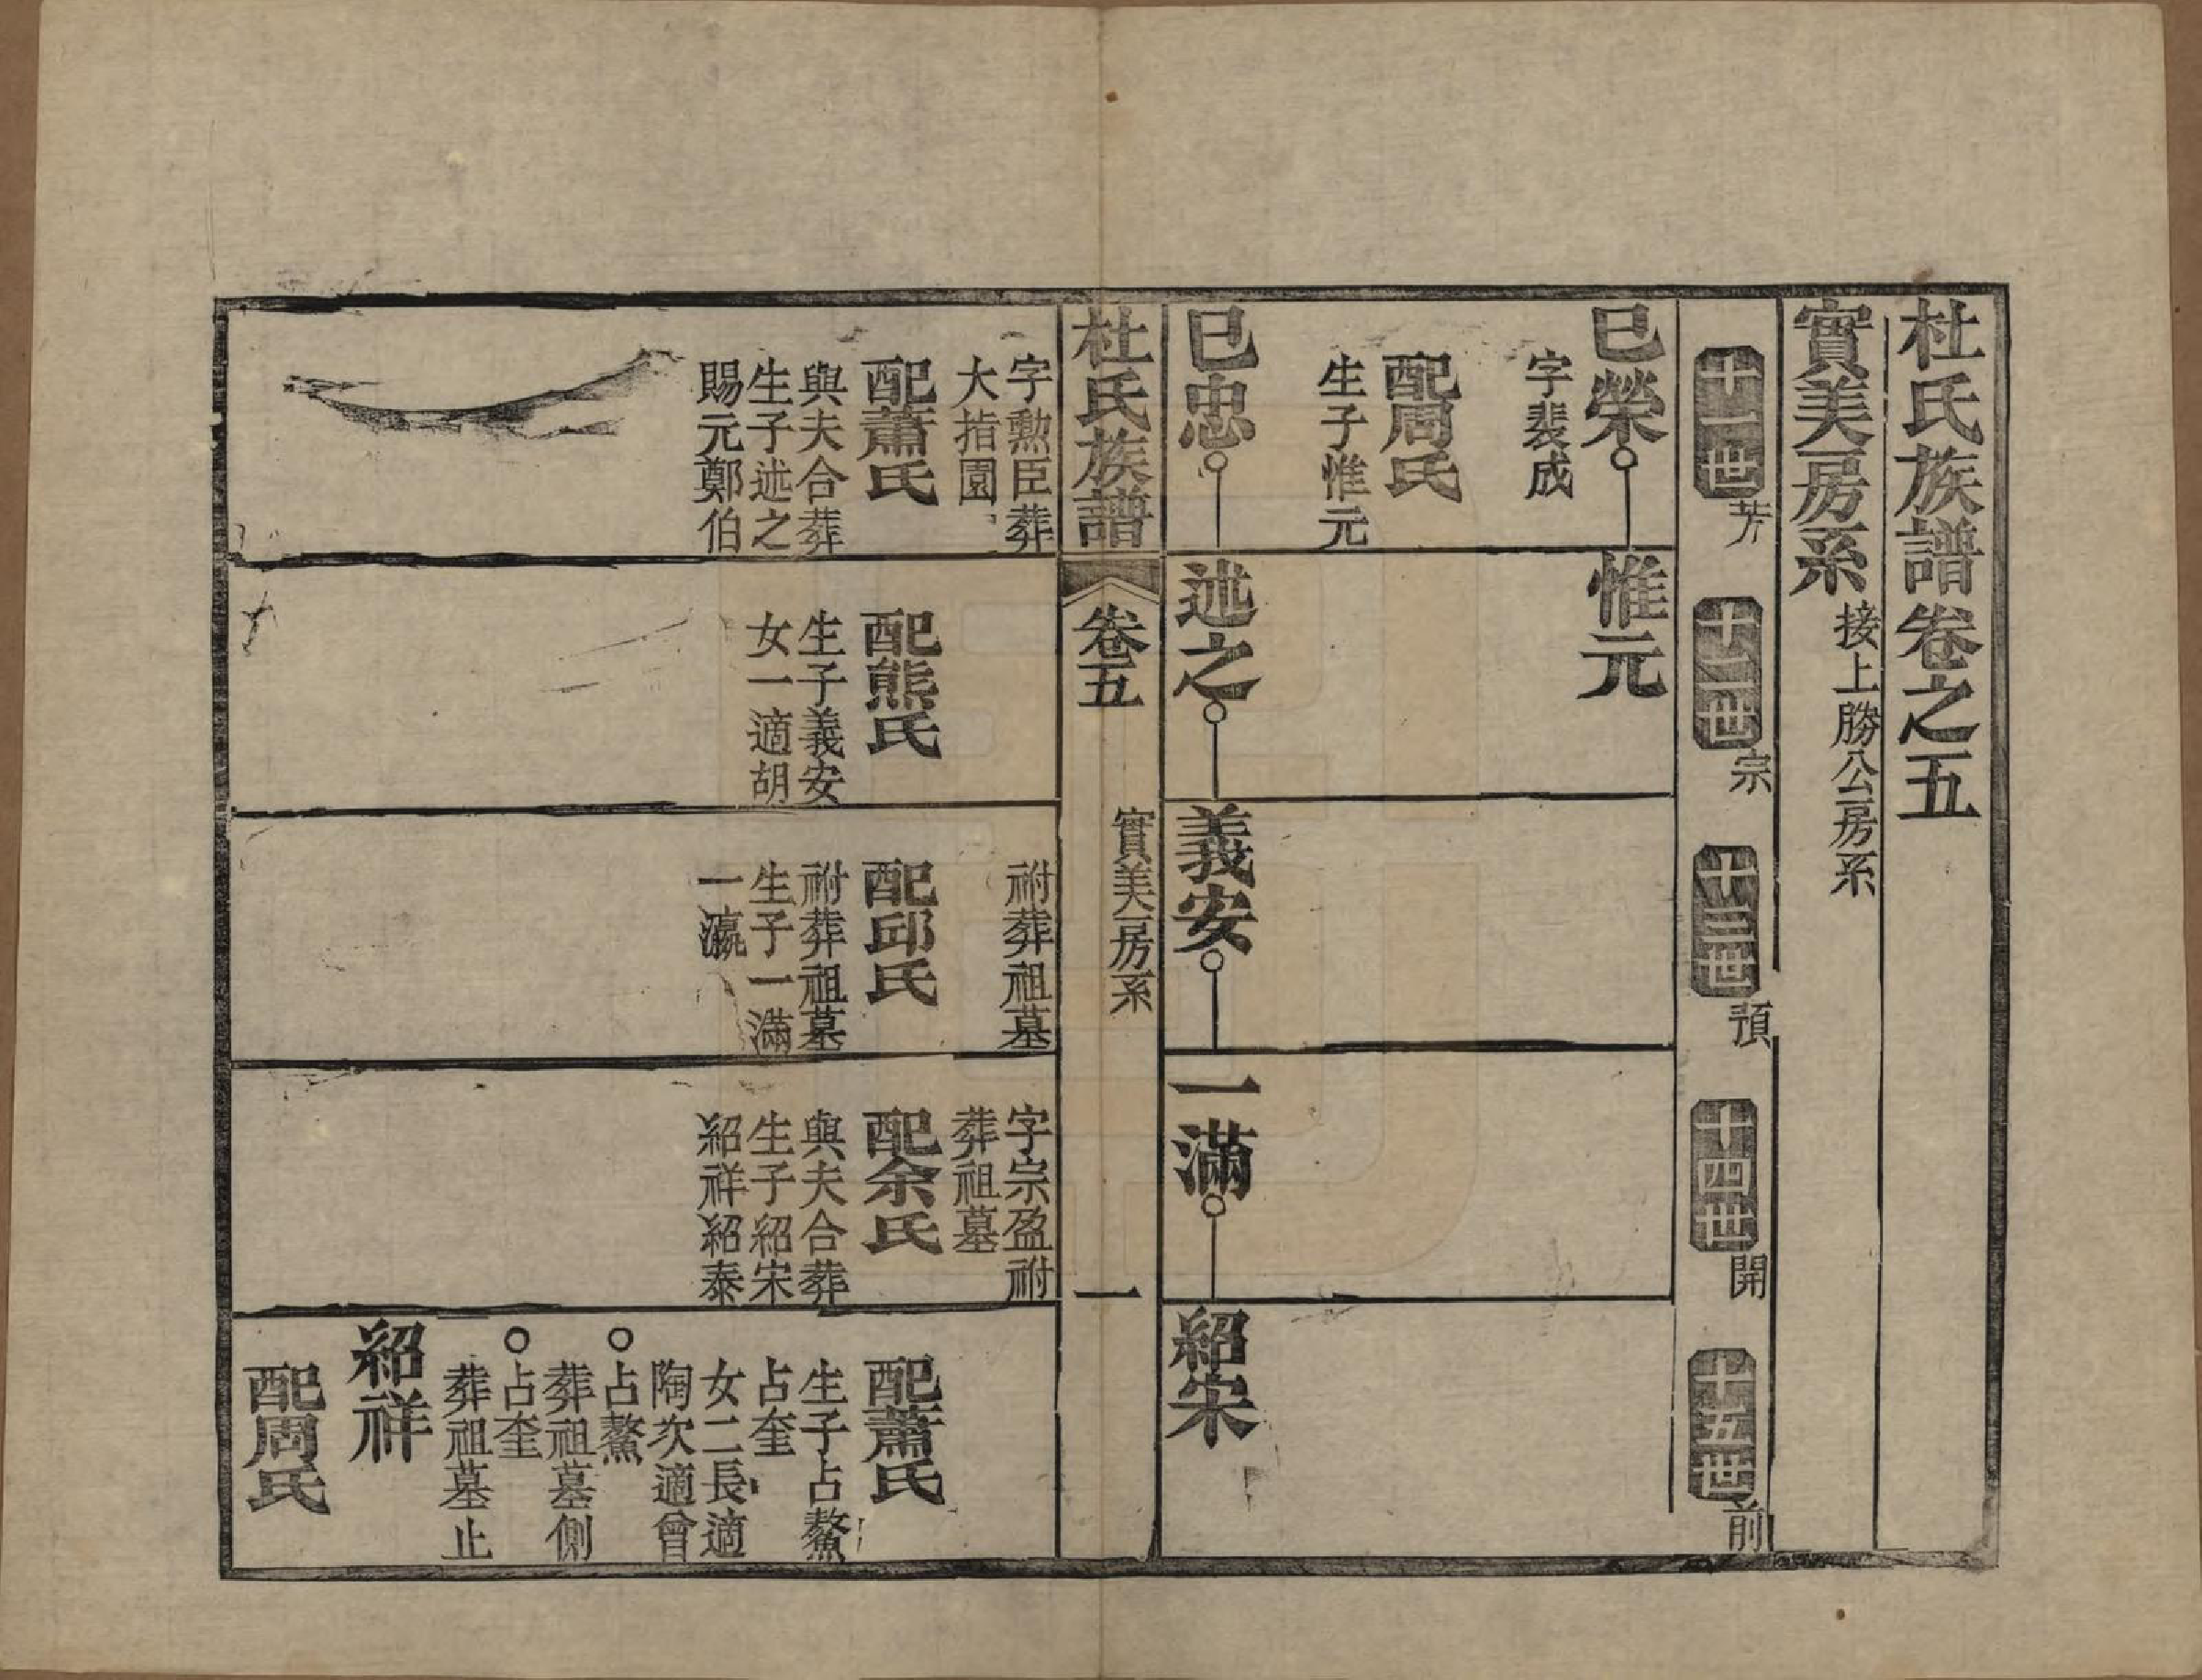 杜氏族譜卷之五
實美房系 接上勝公房系
十一世 芳
十二世 宗
十三世 預
十四世 開
十五世 前
已榮
字裴成
配周氏
生子惟元
惟元
已忠
述之
義安
一滿
紹宋
杜氏族譜
卷五
實美房系
一
字勲臣葬
大指園
配蕭氏
與夫合葬
生子述之
賜元鄭伯
配熊氏
生子義安
女一適胡
祔葬祖墓
配邱氏
祔葬祖墓
生子一滿
一瀛
字宗盈祔
葬祖墓
配余氏
與夫合葬
生子紹宋
紹祥紹泰
配蕭氏
生子占鰲
占奎
女二長適
陶次適曾
○占鰲
葬祖墓側
○占奎
葬祖墓止
紹祥
配周氏